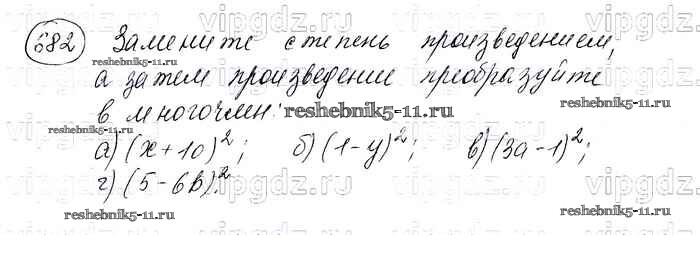 682 Замените степень произведением,
а затем произведение преобразуйте
в многочлен:
а) (x+10)²; б) (1-y)²; в) (3a-1)²;
г) (5-6b)².
vipgdz.ru vipgdz.ru vipgdz.ru
reshebnik5-11.ru reshebnik5-11.ru
reshebnik5-11.ru
reshebnik5-11.ru
reshebnik5-11.ru reshebnik5-11.ru